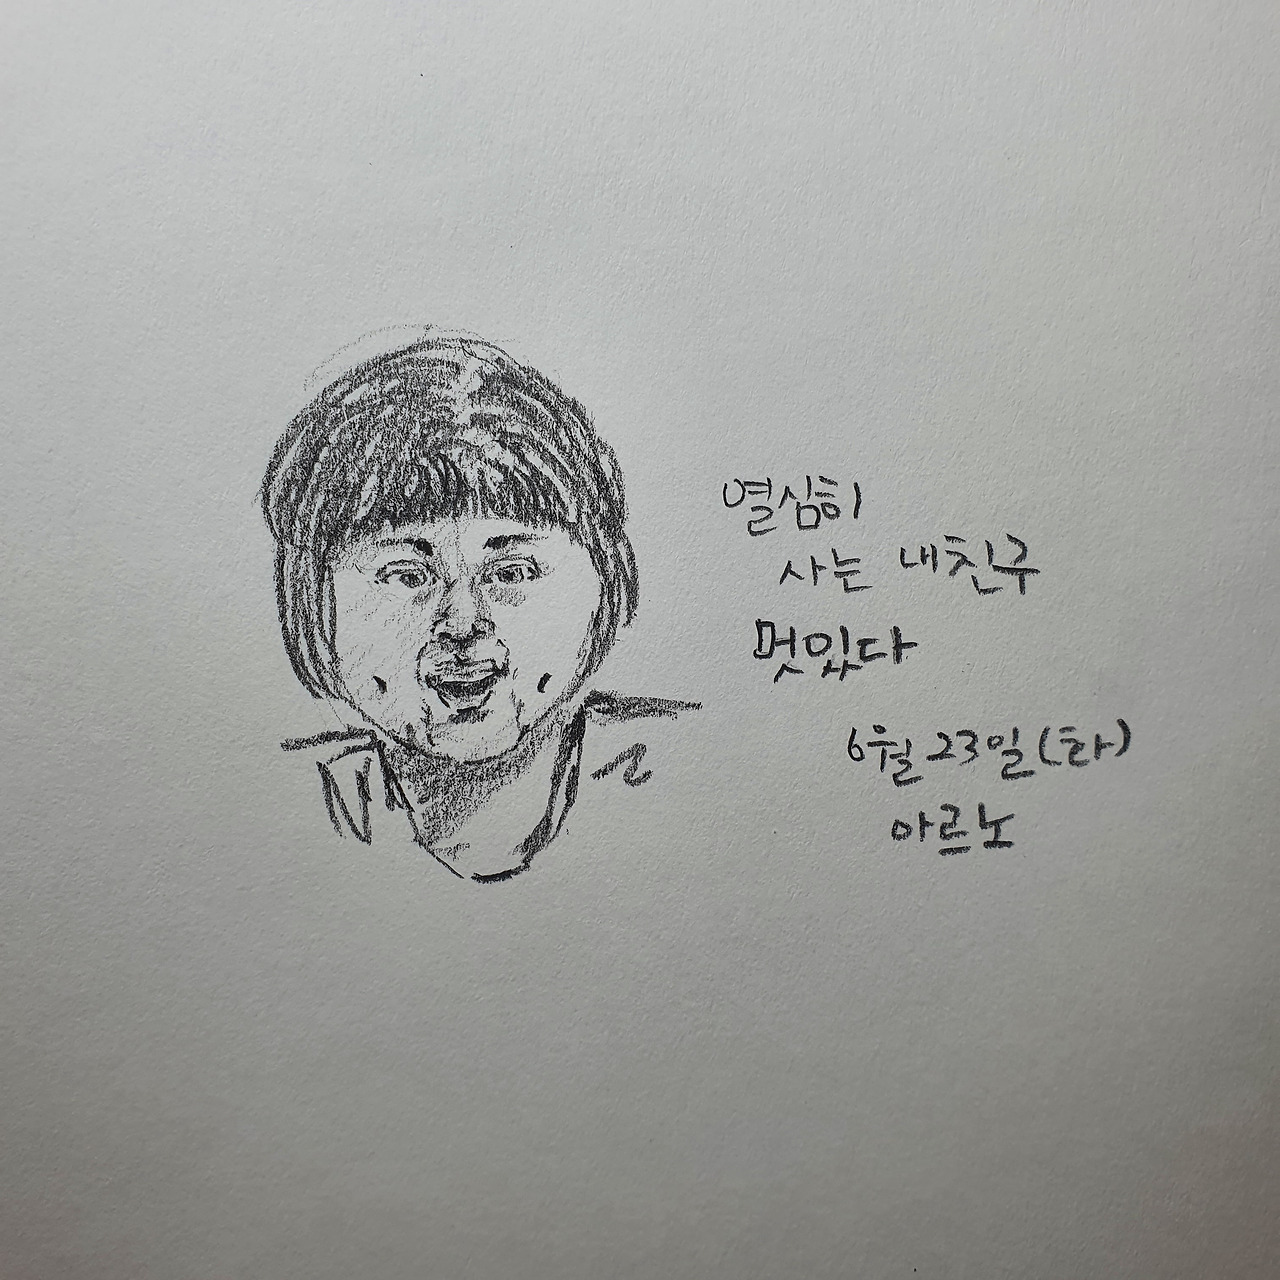 열심히
사는 내친구
멋있다
6월 23일(화)
아르노